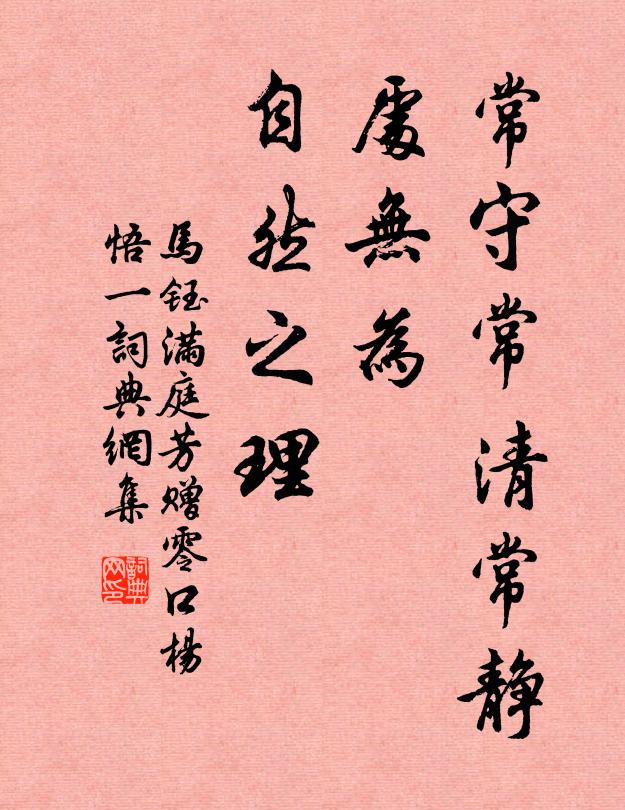 常守常清常静
處無為
自然之理
馬鈺满庭芳赠零口楊
悟一詞典網集
詞典
网印